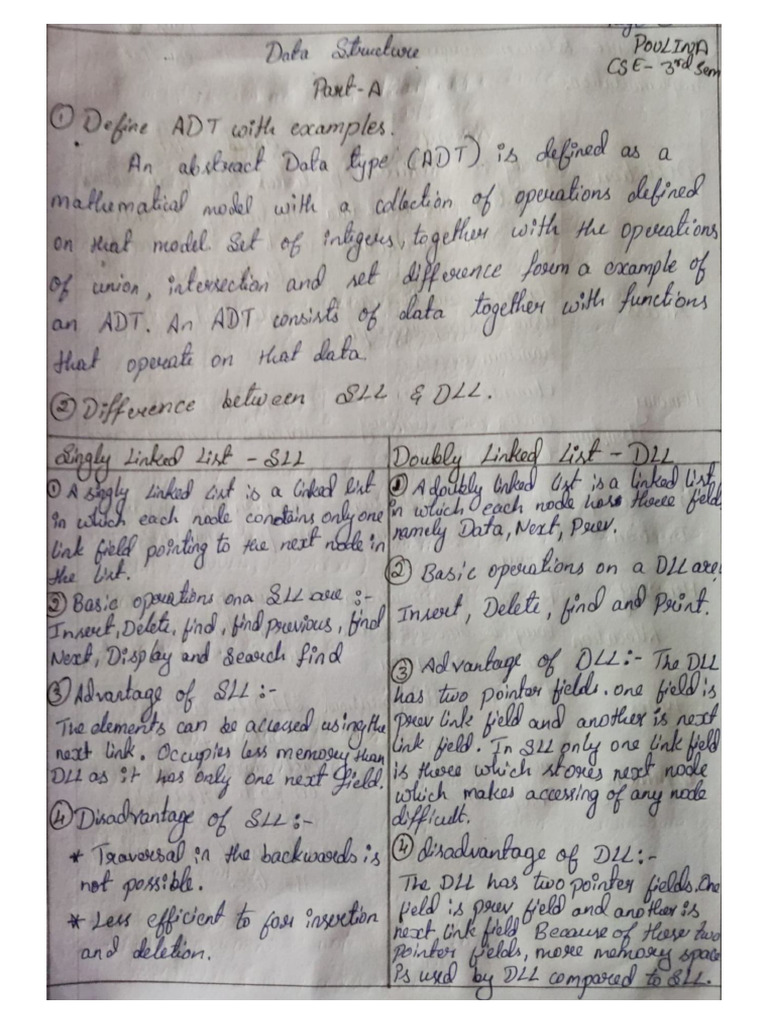 Data Structure
POULINA
CSE- 3rd Sem
Part-A
① Define ADT with examples.
An abstract Data type (ADT) is defined as a
mathematical model with a collection of operations defined
on that model. Set of integers, together with the operations
of union, intersection and set difference form a example of
an ADT. An ADT consists of data together with functions
that operate on that data.
② Difference between SLL & DLL.
Singly Linked List - SLL
① A singly linked list is a linked list
in which each node contains only one
link field pointing to the next node in
the list.
② Basic operations on a SLL are :-
Insert, Delete, find, find previous, find
Next, Display and Search find
③ Advantage of SLL :-
The elements can be accessed using the
next link. Occupies less memory than
DLL as it has only one next field.
④ Disadvantage of SLL :-
* Traversal in the backwards is
not possible.
* Less efficient to for insertion
and deletion.
Doubly Linked List - DLL
① A doubly linked list is a linked list
in which each node has three field
namely Data, Next, Prev.
② Basic operations on a DLL are:
Insert, Delete, find and Print.
③ Advantage of DLL:- The DLL
has two pointer fields. one field is
prev link field and another is next
link field. In SLL only one link field
is there which stores next node
which makes accessing of any node
difficult.
④ disadvantage of DLL:-
The DLL has two pointer fields. One
field is prev field and another is
next link field Because of these two
pointer fields, more memory space
is used by DLL compared to SLL.